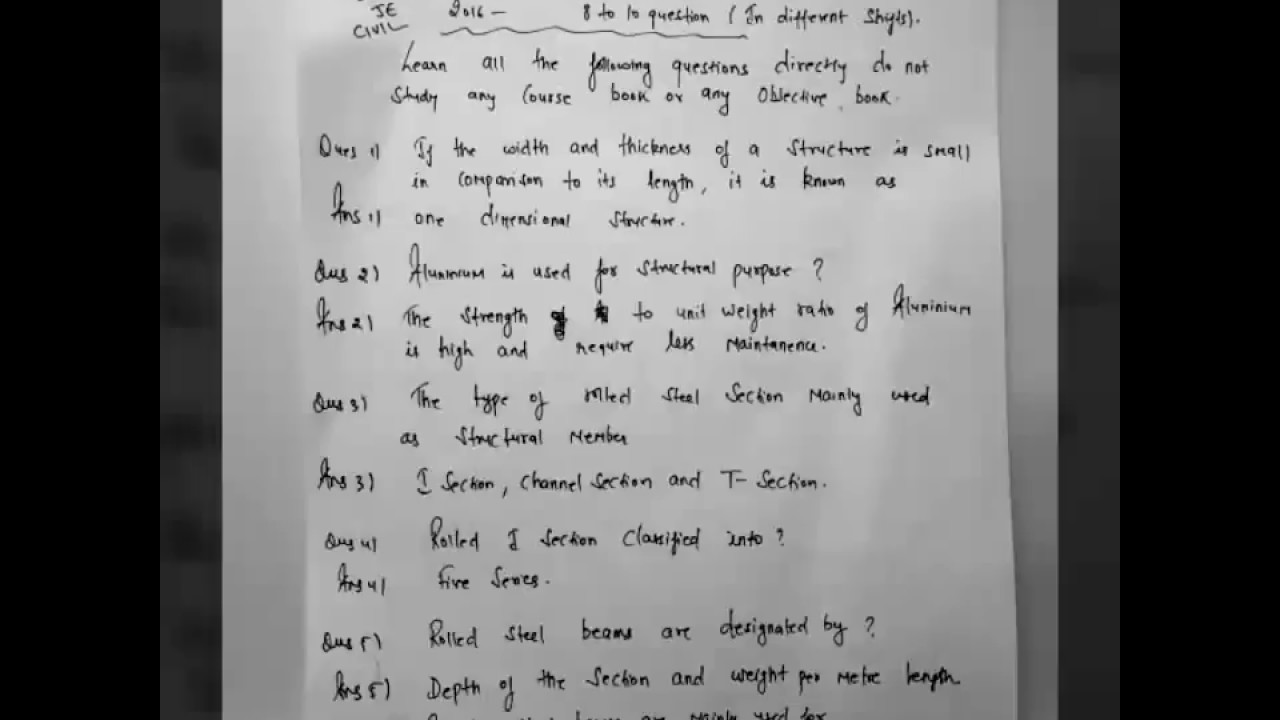 JE 2016 - 8 to 10 question (In different Shyts).
CIVIL
Learn all the following questions directly do not
Study any Course book or any Objective book.
Ques 1) If the width and thickness of a Structure is small
in comparison to its length, it is known as
Ans 1) one dimensional Structure.
Ques 2) Aluminium is used for Structural purpose ?
Ans 2) The Strength to unit weight ratio of Aluminium
is high and require less Maintanence.
Ques 3) The type of rolled steel Section Mainly used
as Structural Member
Ans 3) I Section, Channel Section and T- Section.
Ques 4) Rolled I Section Classified into ?
Ans 4) Five Series.
Ques 5) Rolled Steel beams are designated by ?
Ans 5) Depth of the Section and weight per Metre length.
are Mainly used for